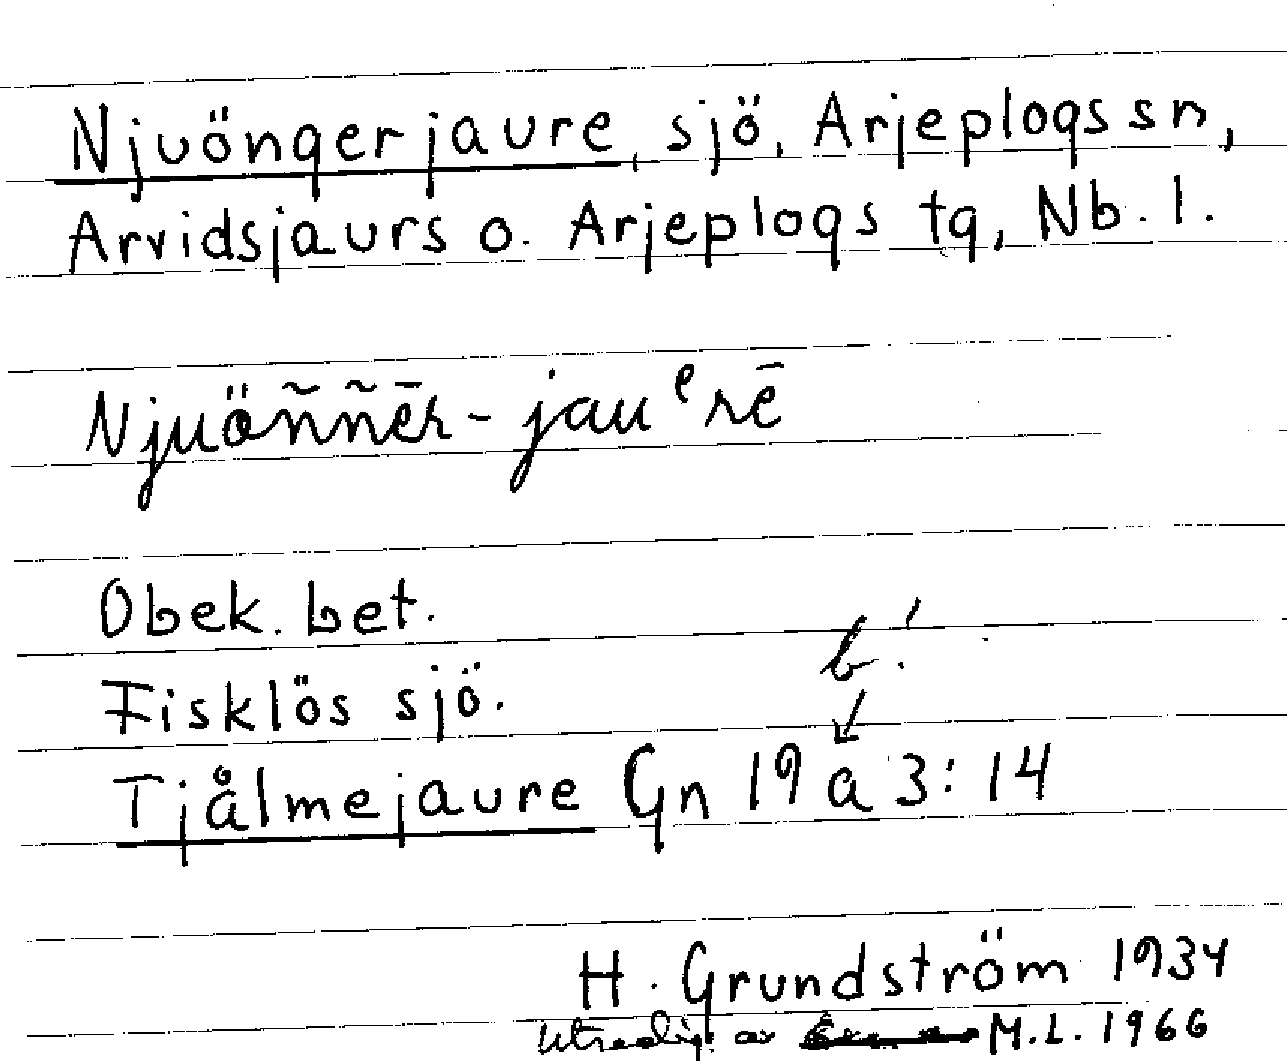 Njuöngerjaure, sjö, Arjeplogs sn,
Arvidsjaurs o. Arjeplogs tg, Nb. l.
Njuöññēr - jauᵉrē
Obek. bet.
b!
Fisklös sjö.
Tjålmejaure Gn 19 a 3:14
H. Grundström 1934
av M.L. 1966